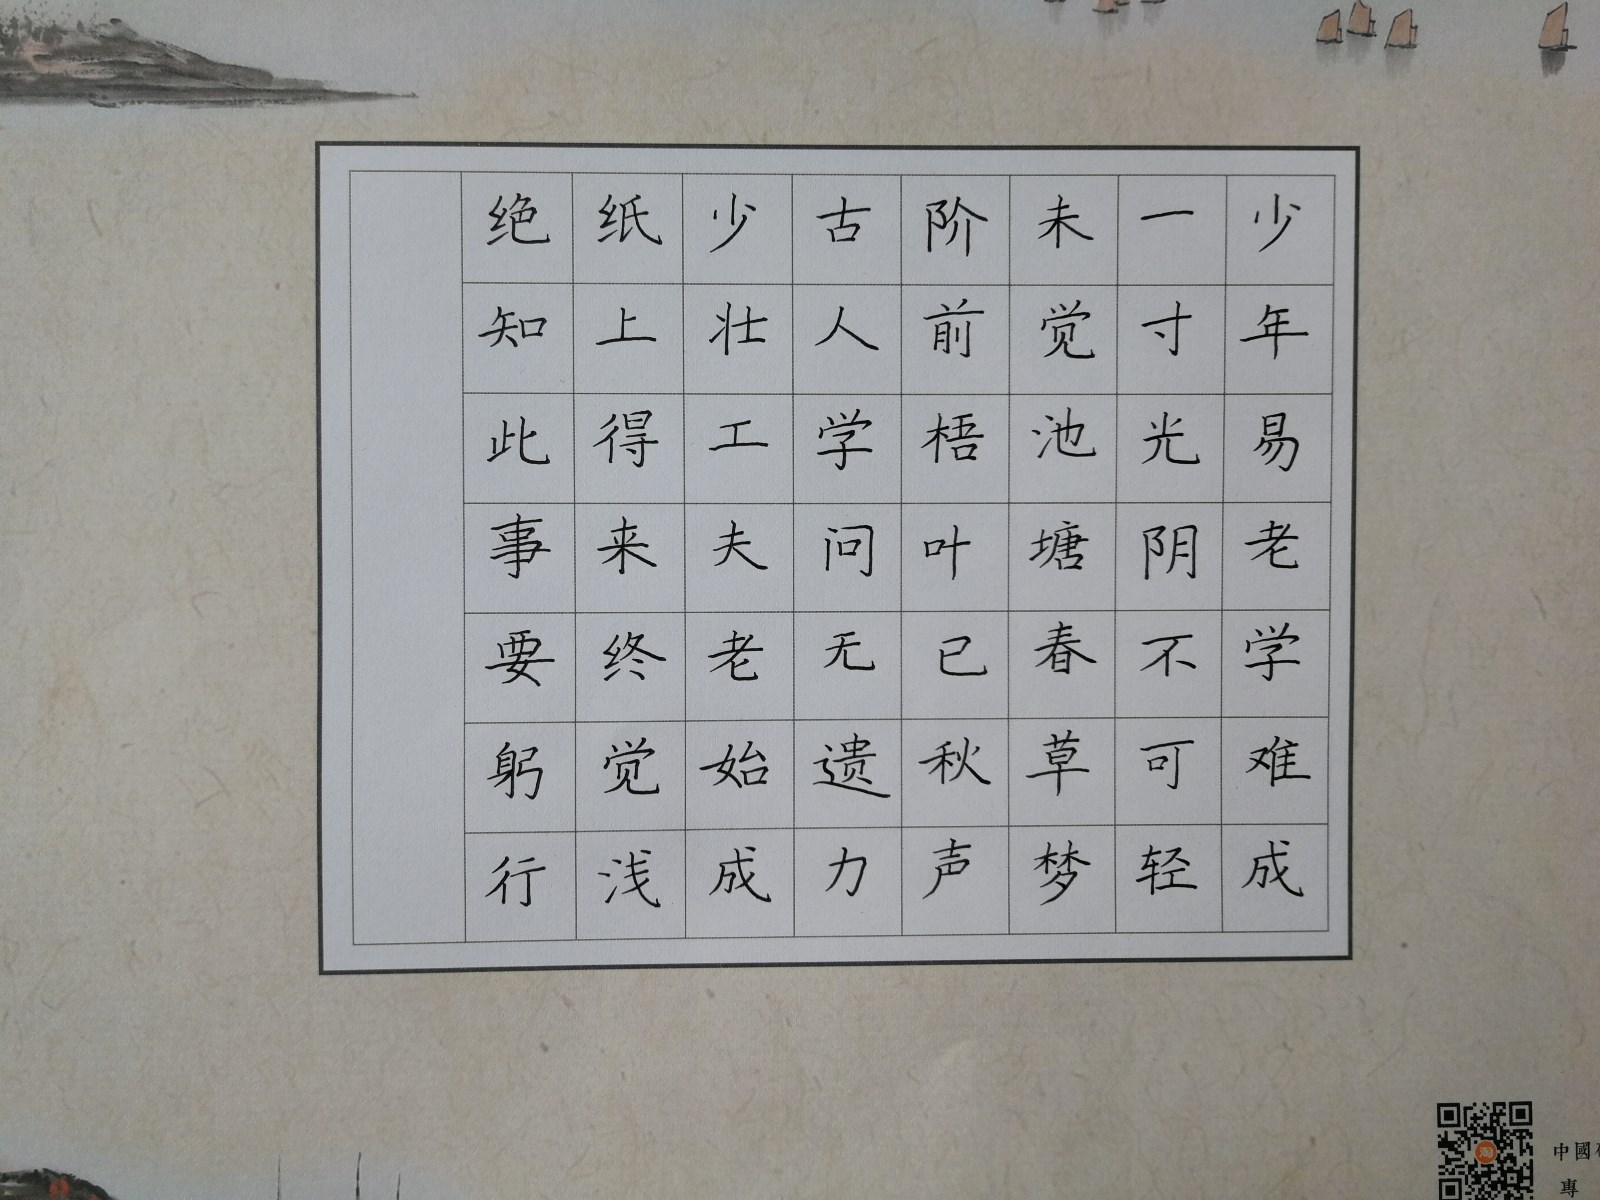 少年易老学难成
一寸光阴不可轻
未觉池塘春草梦
阶前梧叶已秋声
古人学问无遗力
少壮工夫老始成
纸上得来终觉浅
绝知此事要躬行
淘
中國
專